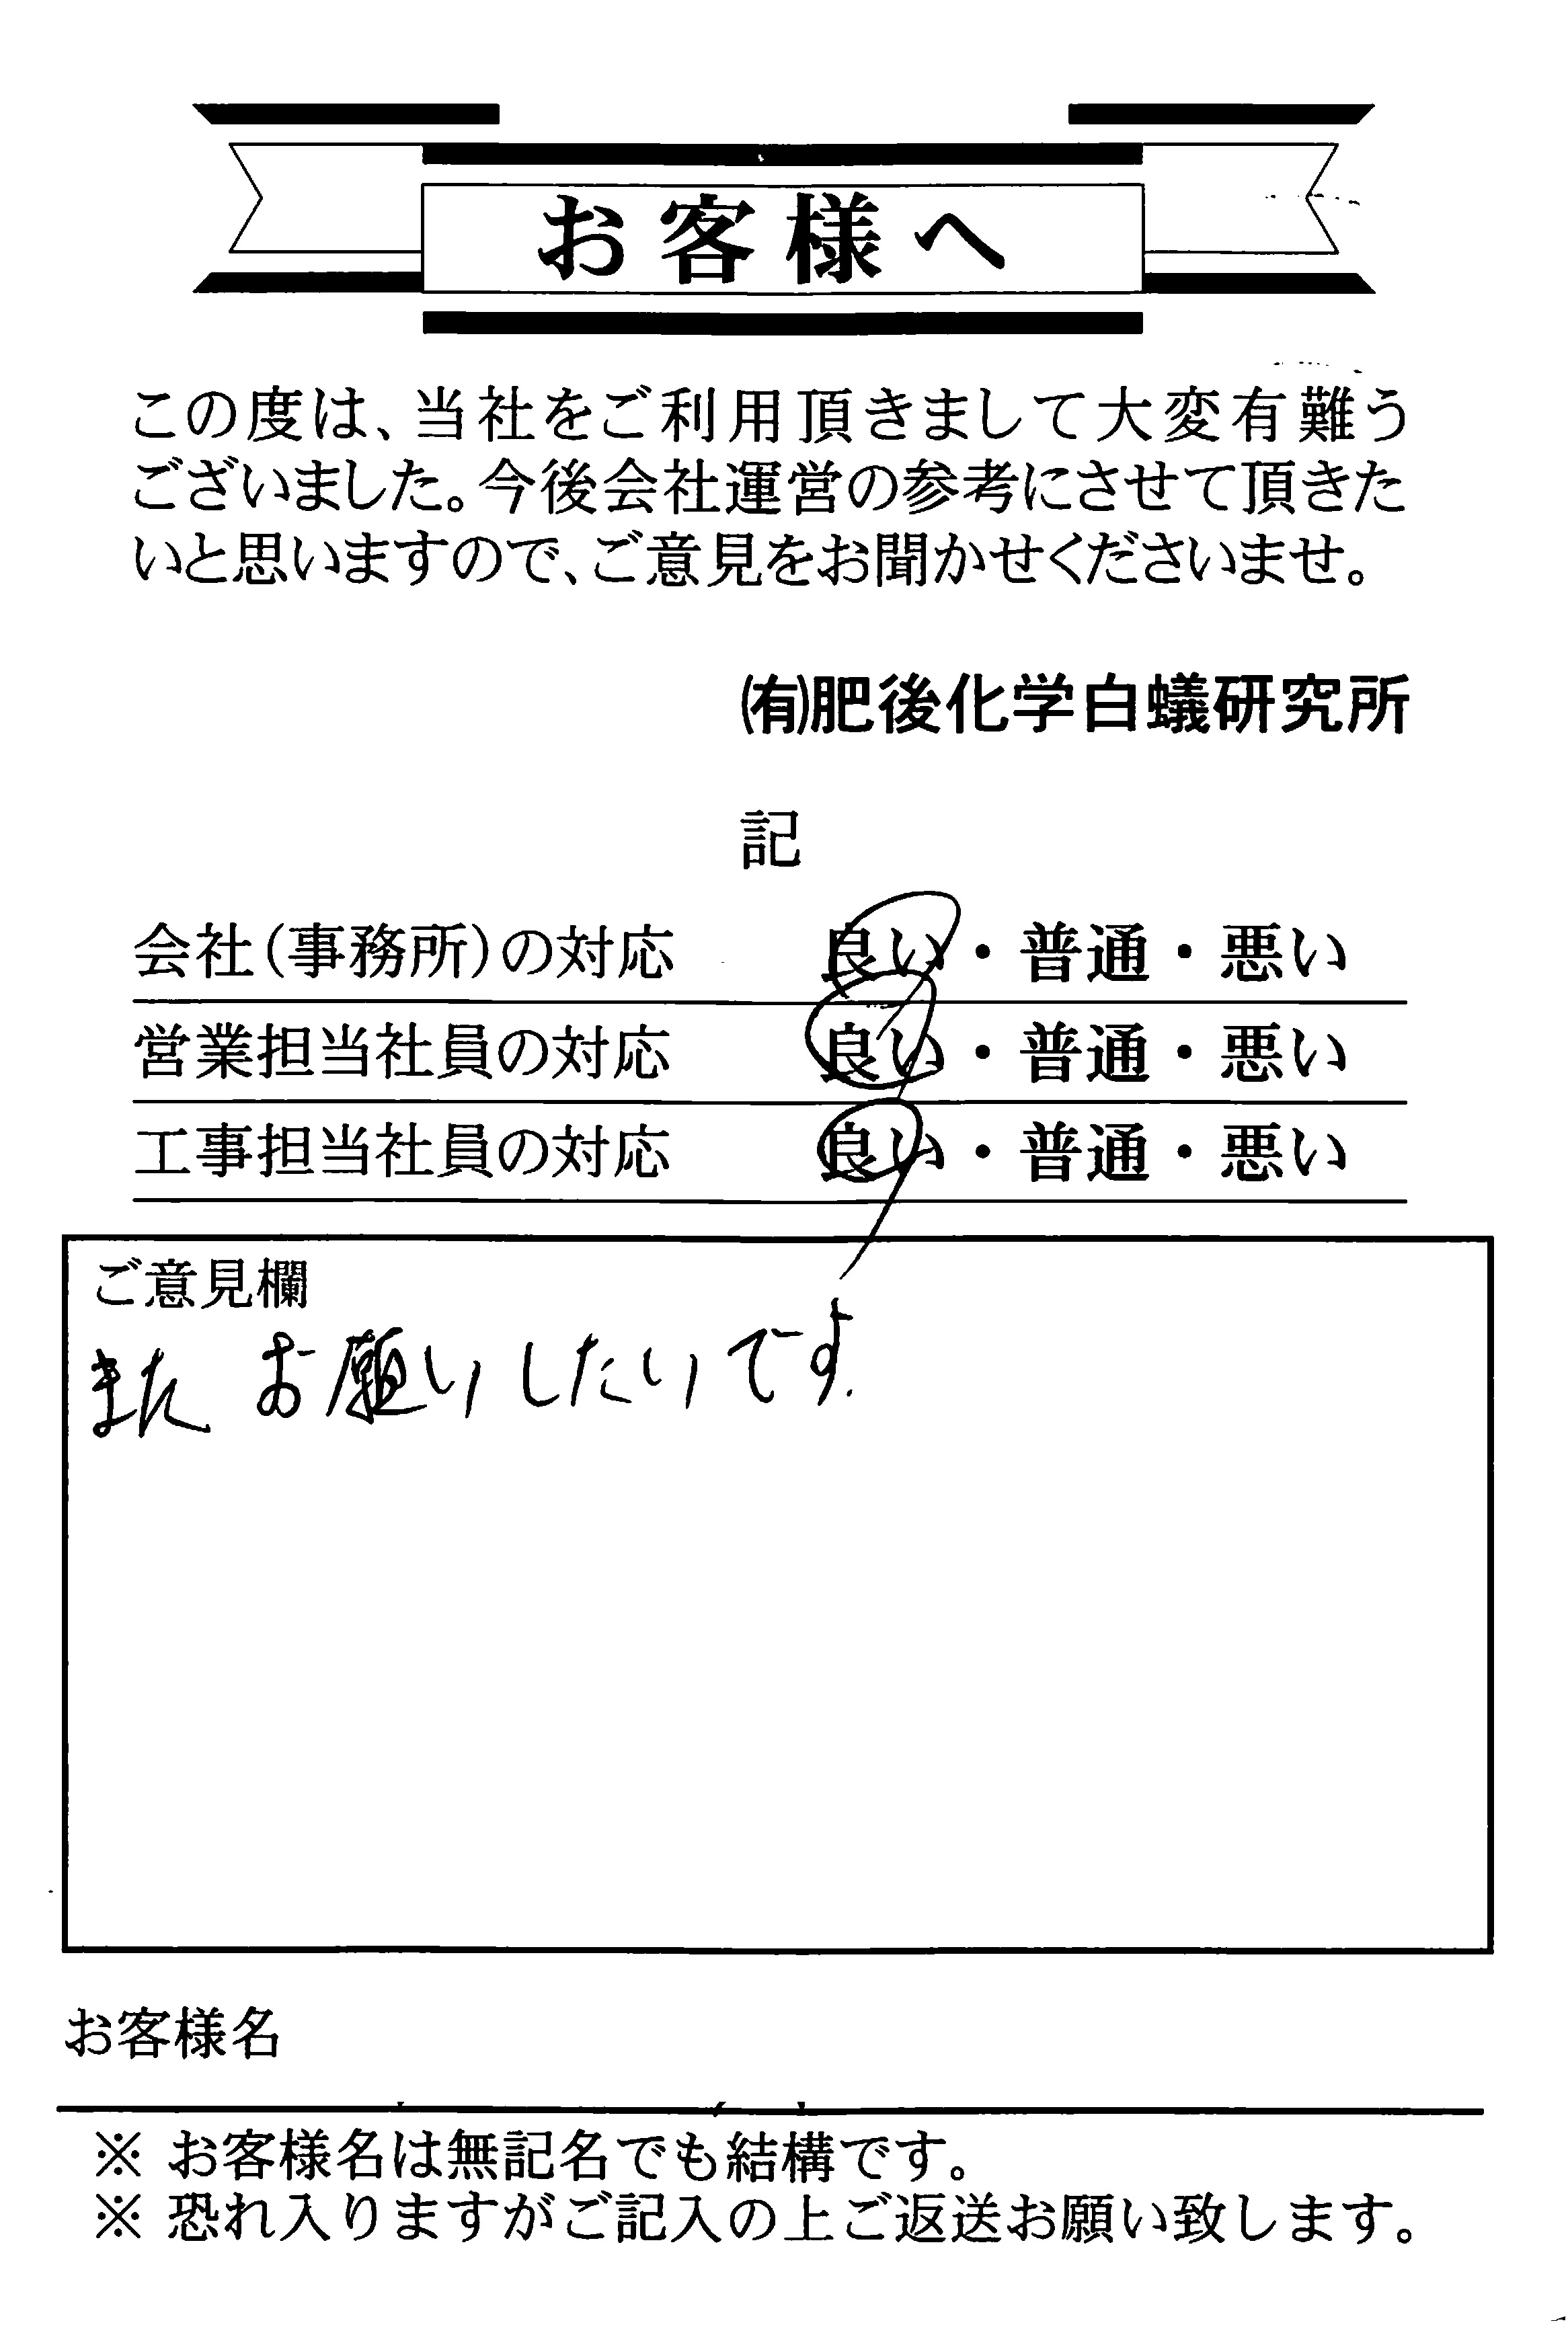 お客様へ
この度は、当社をご利用頂きまして大変有難う
ございました。今後会社運営の参考にさせて頂きた
いと思いますので、ご意見をお聞かせくださいませ。
㈲肥後化学白蟻研究所
記
会社(事務所)の対応 良い・普通・悪い
営業担当社員の対応 良い・普通・悪い
工事担当社員の対応 良い・普通・悪い
ご意見欄
また お願いしたいです.
お客様名
※ お客様名は無記名でも結構です。
※ 恐れ入りますがご記入の上ご返送お願い致します。